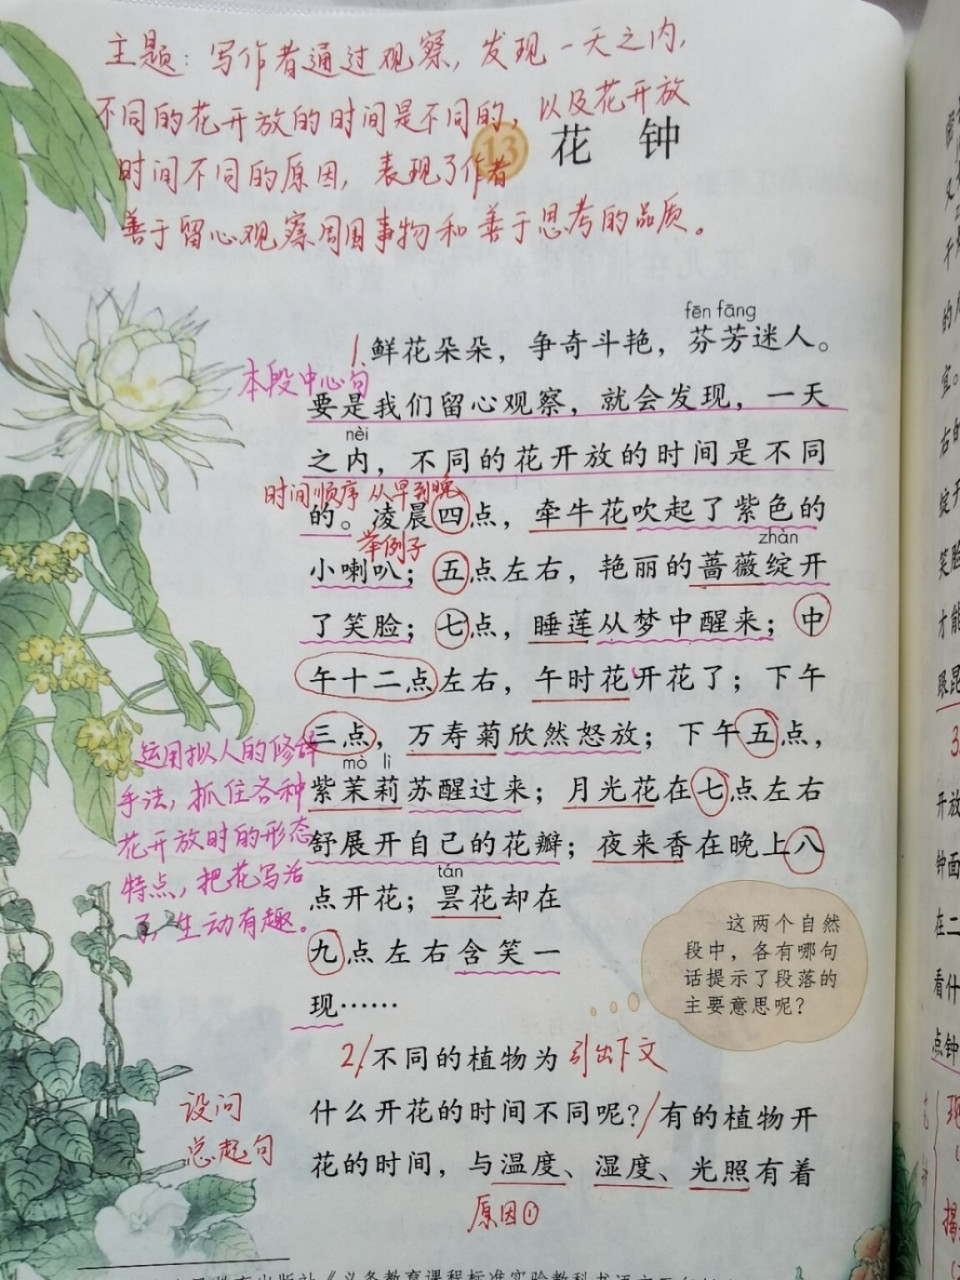 主题：写作者通过观察，发现一天之内，
不同的花开放的时间是不同的，以及花开放
时间不同的原因，表现了作者
善于留心观察周围事物和善于思考的品质。
13 花钟
fēn fāng
1.鲜花朵朵，争奇斗艳，芬芳迷人。
本段中心句
要是我们留心观察，就会发现，一天
nèi
之内，不同的花开放的时间是不同
时间顺序 从早到晚
的。凌晨四点，牵牛花吹起了紫色的
举例子
zhàn
小喇叭；五点左右，艳丽的蔷薇绽开
了笑脸；七点，睡莲从梦中醒来；中
午十二点左右，午时花开花了；下午
三点，万寿菊欣然怒放；下午五点，
mò lì
紫茉莉苏醒过来；月光花在七点左右
舒展开自己的花瓣；夜来香在晚上八
tán
点开花；昙花却在
九点左右含笑一
现……
运用拟人的修辞
手法，抓住各种
花开放时的形态
特点，把花写活
了，生动有趣。
这两个自然
段中，各有哪句
话提示了段落的
主要意思呢？
2/不同的植物为 引出下文
设问
什么开花的时间不同呢？/有的植物开
总起句
花的时间，与温度、湿度、光照有着
原因①